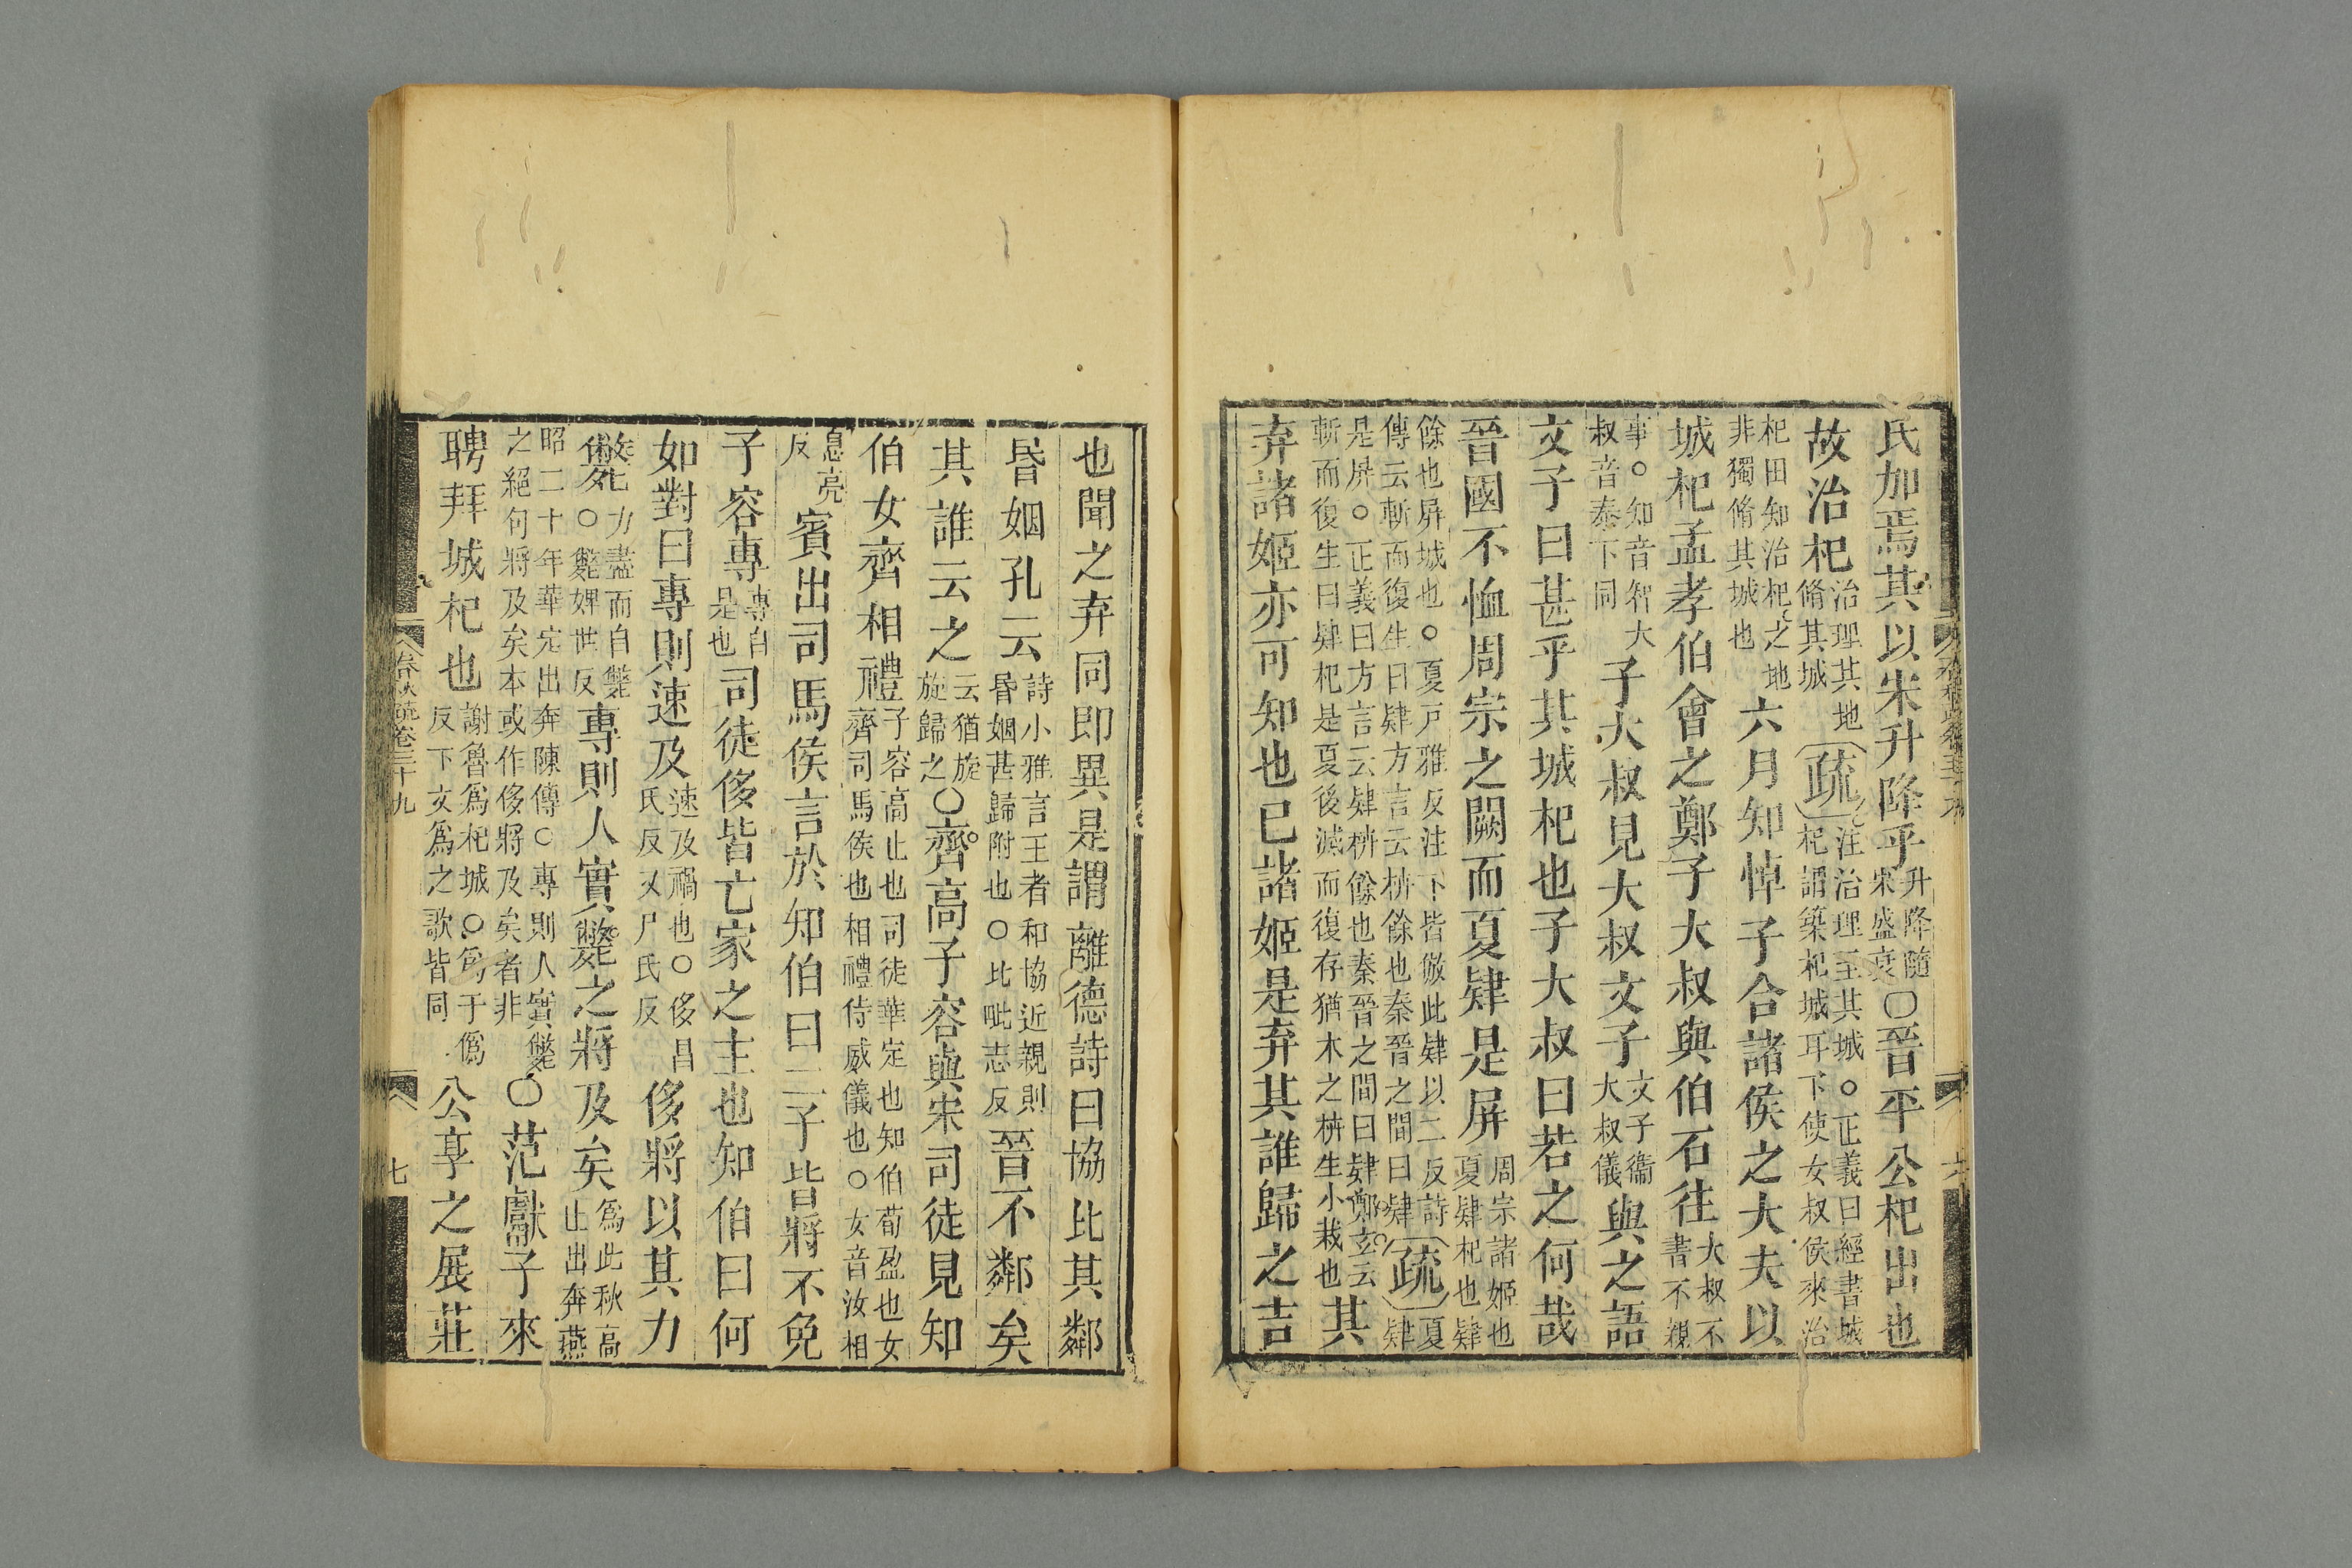 氏加焉其以宋升降乎升降隨宋盛衰〇晉平公杞出也
故治杞治理其地脩其城疏注治理至其城〇正義曰經書城杞謂築杞城耳下使女叔侯來治
杞田知治杞之地非獨脩其城也六月知悼子合諸侯之大夫以
城杞孟孝伯會之鄭子大叔與伯石往大叔不書不親
事〇知音智大叔音泰下同子大叔見大叔文子文子衞大叔儀與之語
文子曰甚乎其城杞也子大叔曰若之何哉
晉國不恤周宗之闕而夏肄是屏周宗諸姬也夏肄杞也肄
餘也屏城也〇夏戸雅反注下皆倣此肄以二反詩傳云斬而復生曰肄方言云枿餘也秦晉之間曰肄疏夏肄
是屏〇正義曰方言云肄枿餘也秦晉之間曰肄鄭玄云斬而復生曰肄杞是夏後滅而復存猶木之枿生小栽也其
弃諸姬亦可知也已諸姬是弃其誰歸之吉
也聞之弃同即異是謂離德詩曰協比其鄰
昬姻孔云詩小雅言王者和協近親則昬姻甚歸附也〇比毗志反晉不鄰矣
其誰云之云猶旋旋歸之〇齊高子容與宋司徒見知
伯女齊相禮子容高止也司徒華定也知伯荀盈也女齊司馬侯也相禮侍威儀也〇女音汝相
息亮反賓出司馬侯言於知伯曰二子皆將不免
子容專專自是也司徒侈皆亡家之主也知伯曰何
如對曰專則速及速及禍也〇侈昌氏反又尸氏反侈將以其力
斃力盡而自斃〇斃婢世反專則人實斃之將及矣爲此秋高止出奔燕
昭二十年華定出奔陳傳〇專則人實斃之絕句將及矣本或作侈將及矣者非〇范獻子來
聘拜城杞也謝魯爲杞城〇爲于僞反下文爲之歌皆同公享之展莊
春秋疏卷三十九
七